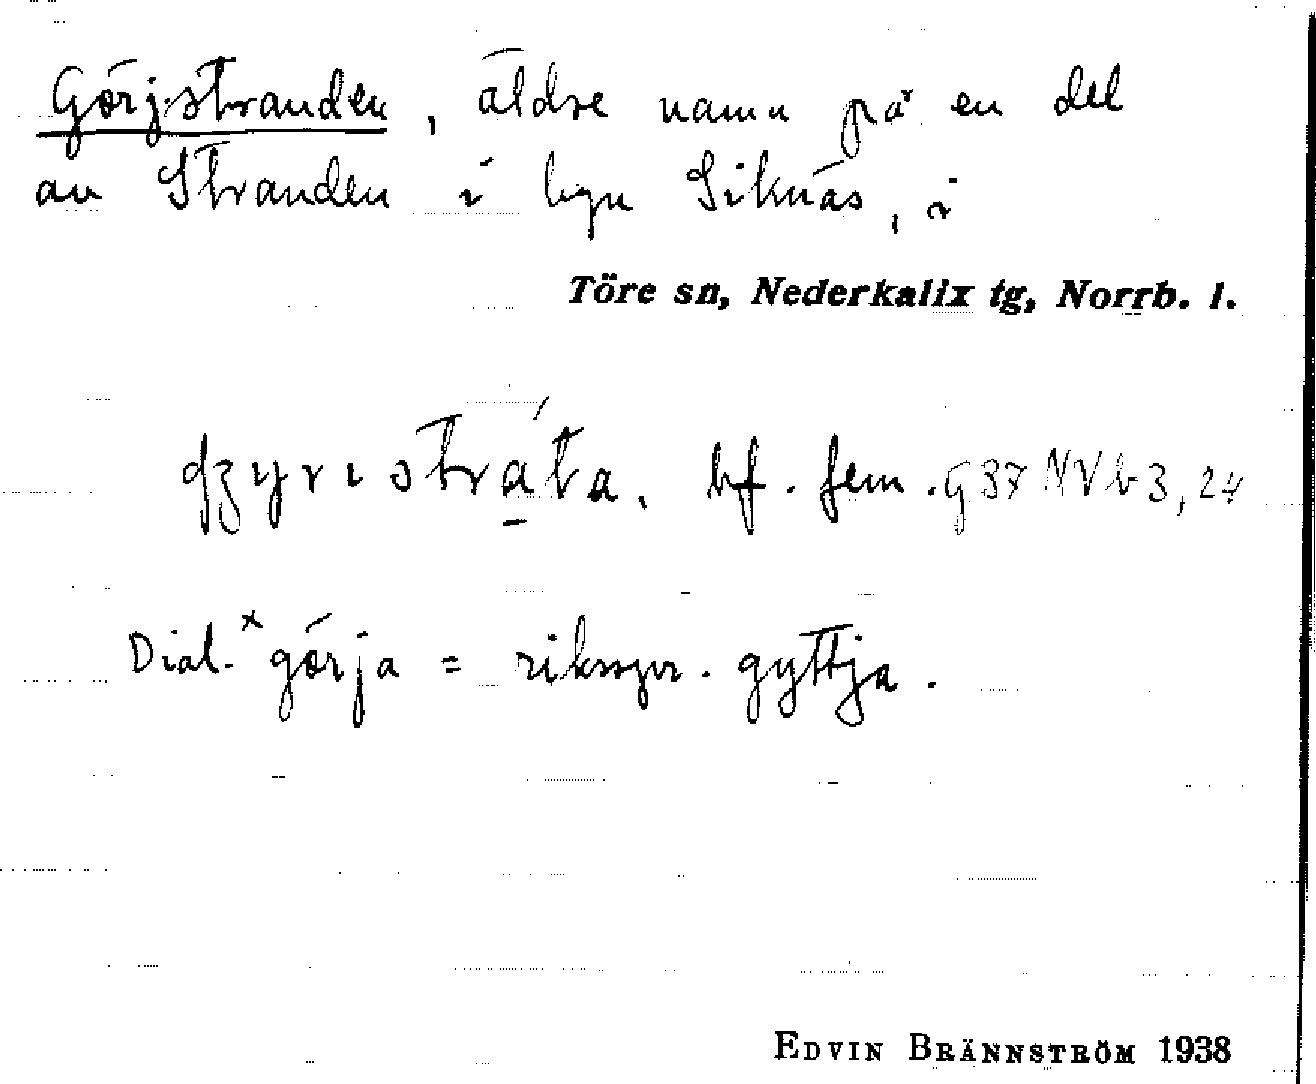 Görjstranden, äldre namn på en del
av Stranden i byn Siknäs, i
Töre sn, Nederkalix tg, Norrb. l.
bf. fem. G37 NVb3, 24
Dial. ˣgörja = riksspr. gyttja.
EDVIN BRÄNNSTRÖM 1938